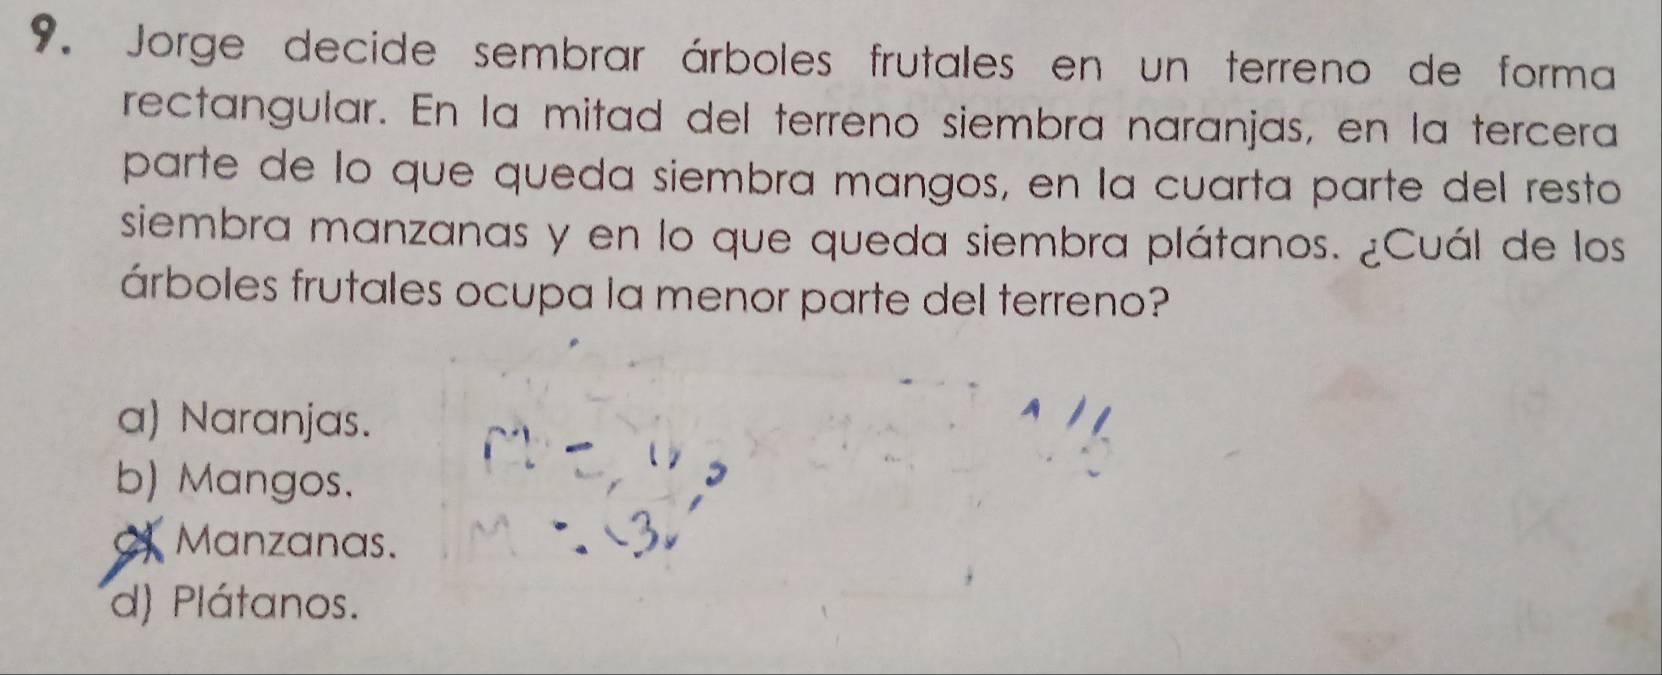 9. Jorge decide sembrar árboles frutales en un terreno de forma
rectangular. En la mitad del terreno siembra naranjas, en la tercera
parte de lo que queda siembra mangos, en la cuarta parte del resto
siembra manzanas y en lo que queda siembra plátanos. ¿Cuál de los
árboles frutales ocupa la menor parte del terreno?
a) Naranjas.
b) Mangos.
Manzanas.
d) Plátanos.